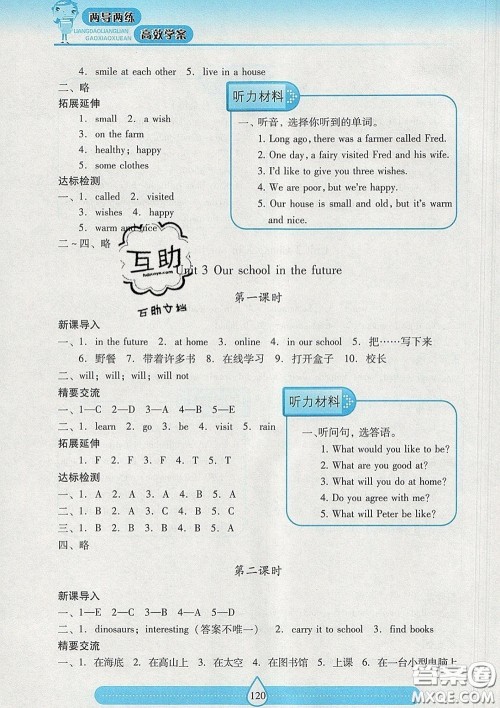 两导两练
LIANGDAOLIANGLIAN
GAOXIAOXUEAN
高效学案
4. smile at each other 5. live in a house
二、略
拓展延伸
1. small 2. a wish
3. on the farm
4. healthy; happy
5. some clothes
达标检测
一、1. called 2. visited
3. wishes 4. happy
5. warm and nice
二~四、略
听力材料
一、听音，选择你听到的单词。
1. Long ago, there was a farmer called Fred.
2. One day, a fairy visited Fred and his wife.
3. I'd like to give you three wishes.
4. We are poor, but we're happy.
5. Our house is small and old, but it's warm and nice.
互助
互助文档
Unit 3 Our school in the future
第一课时
新课导入
一、1. in the future 2. at home 3. online 4. on screens 5. 把……写下来
6. 野餐 7. 带着许多书 8. 在线学习 9. 打开盒子 10. 校长
二、will; will; will; will not
精要交流
一、1—C 2—D 3—A 4—B 5—E
二、1. learn 2. go 3. be 4. visit 5. rain
拓展延伸
1. F 2. F 3. F 4. T 5. T
达标检测
一、1. A 2. A 3. A 4. A 5. A
二、1. B 2. C 3. A 4. A 5. B
三、1. B 2. C 3. B 4. A 5. B
四、略
听力材料
一、听问句，选答语。
1. What would you like to be?
2. What are you good at?
3. What will you do at home?
4. Do you agree with me?
5. What will Peter be like?
第二课时
新课导入
一、1—E 2—D 3—A 4—C 5—B
二、1. dinosaurs; interesting（答案不唯一） 2. carry it to school 3. find books
精要交流
一、1. 在海底 2. 在高山上 3. 在太空 4. 在图书馆 5. 上课 6. 在一台小型电脑上
120
答案圈
MXQE.COM